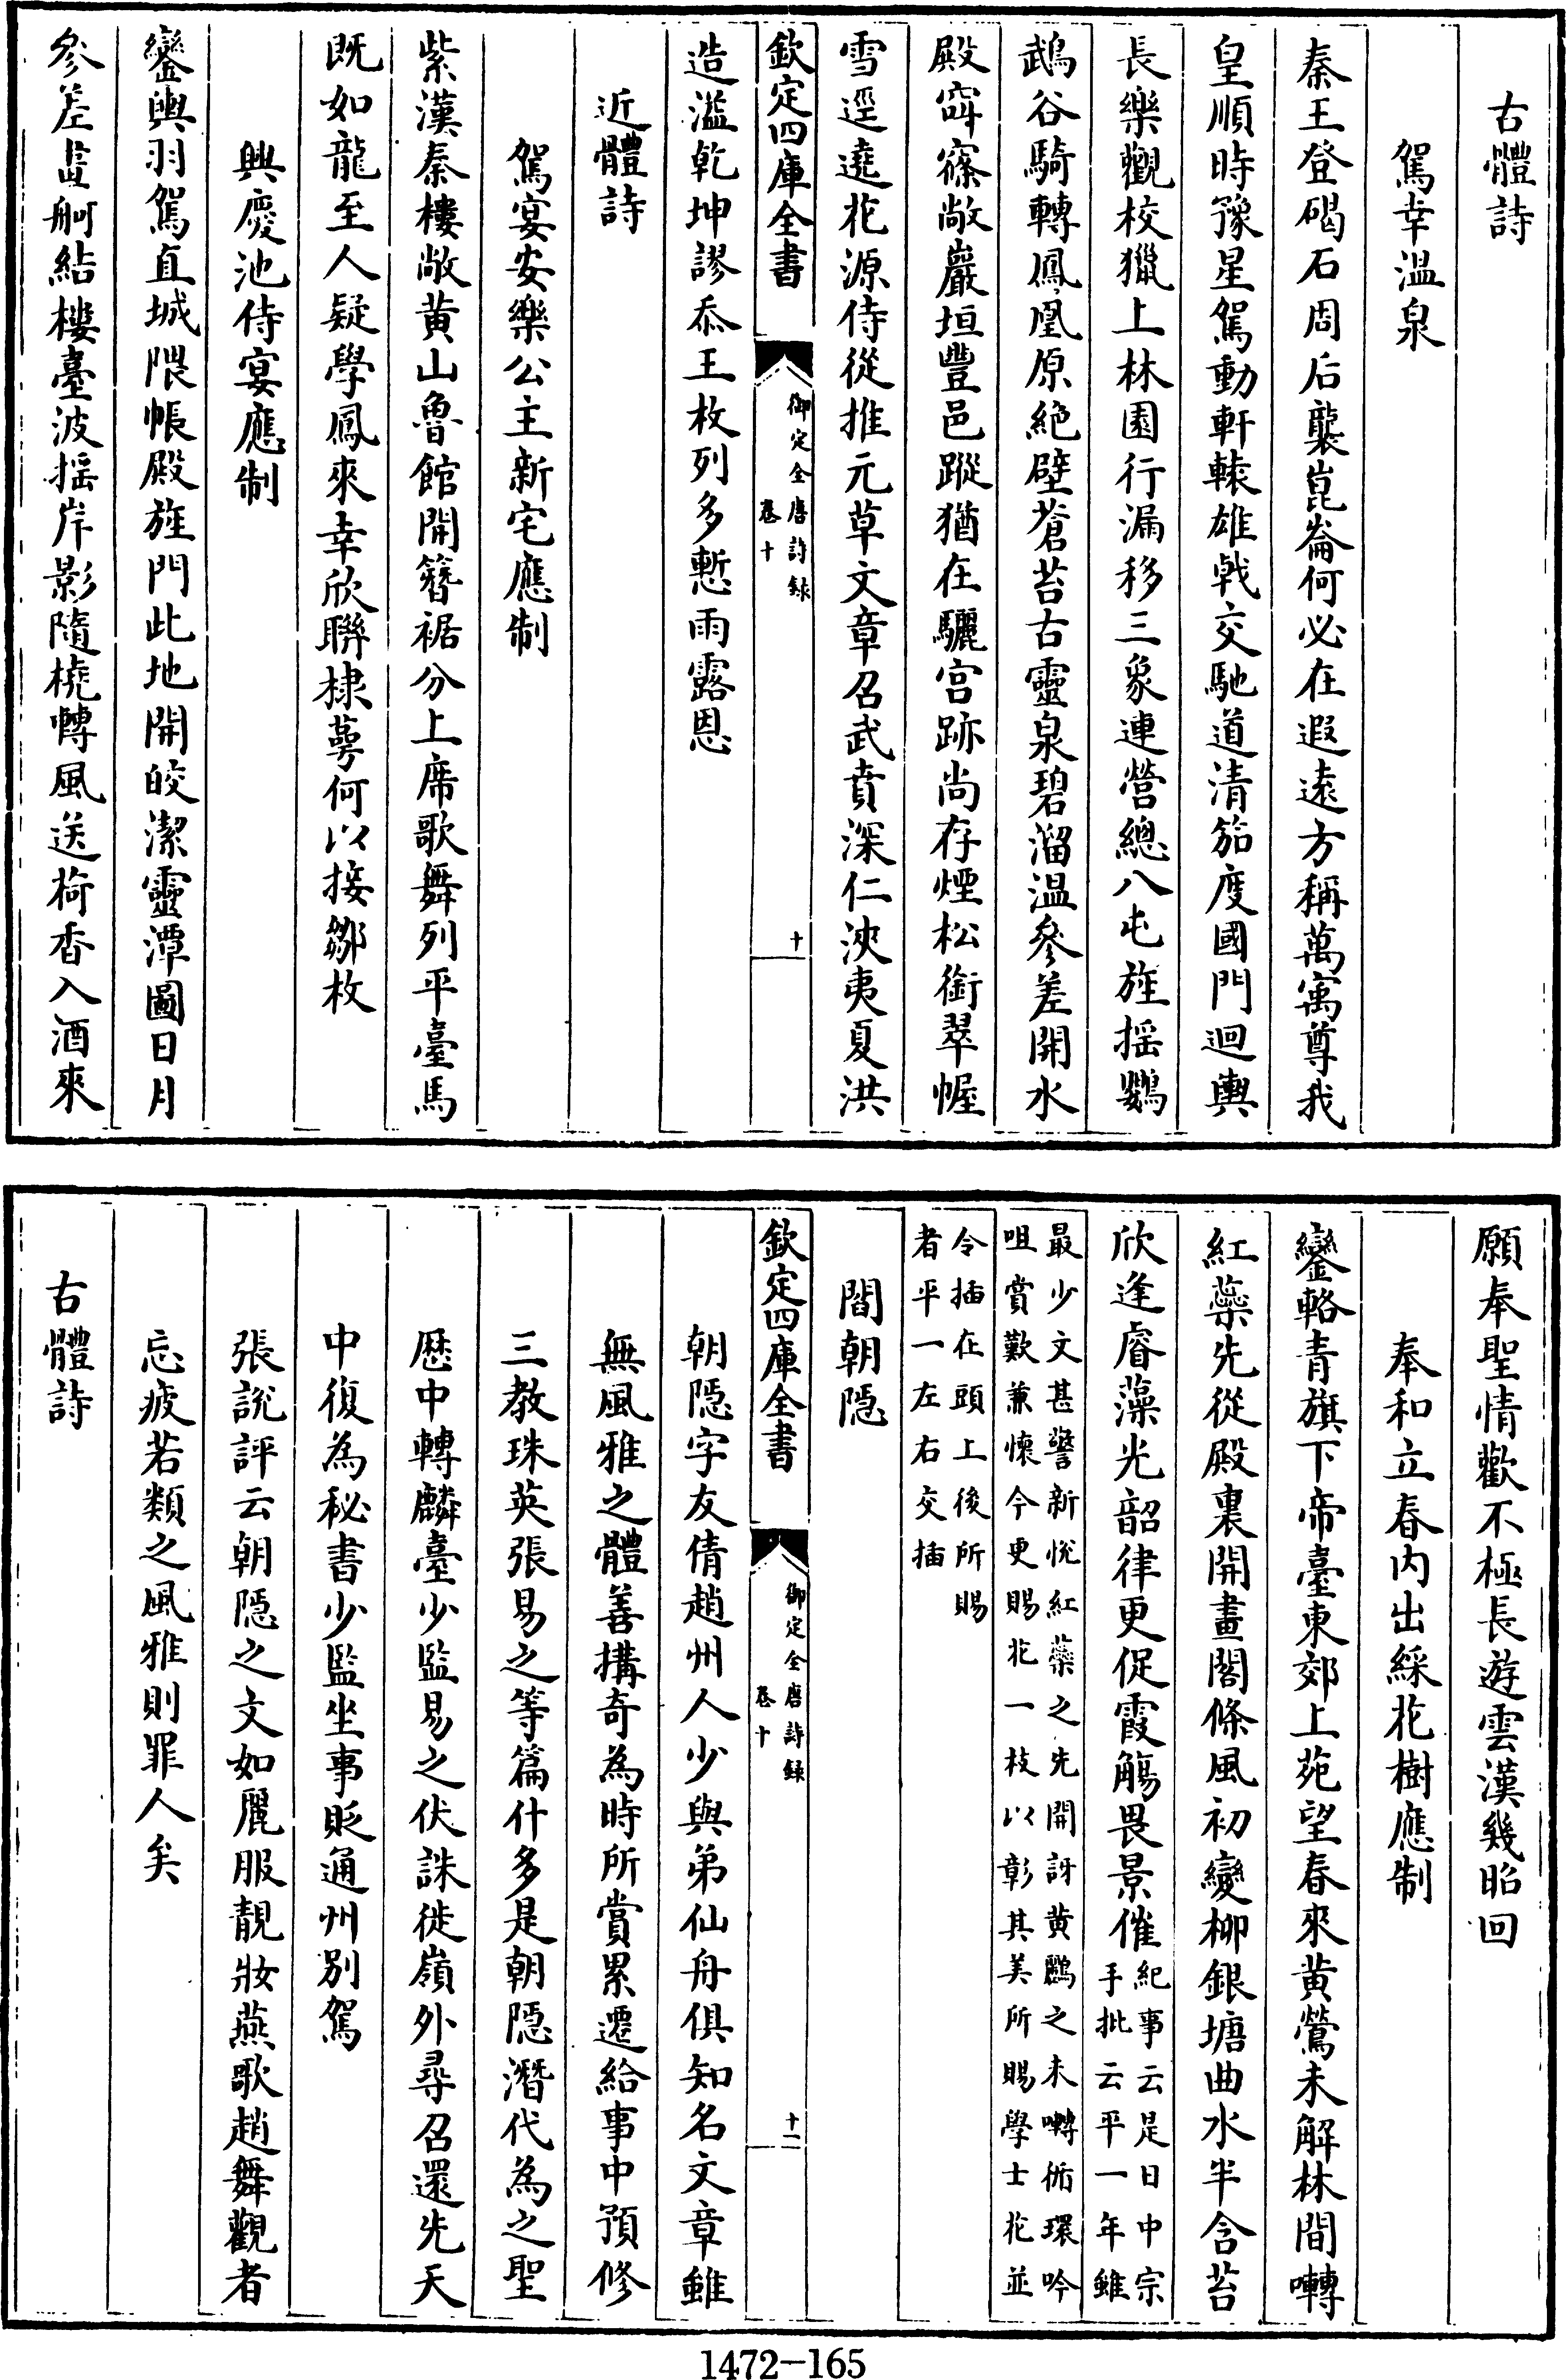 古體詩
駕幸溫泉
秦王登碣石周后襲崑崙何必在遐遠方稱萬寓尊我
皇順時豫星駕動軒轅雄戟交馳道清笳度國門迴輿
長樂觀校獵上林園行漏移三象連營總八屯旌搖鸚
鵡谷騎轉鳳凰原絶壁蒼苔古靈泉碧溜温參差開水
殿窅窱敞巖垣豐邑蹤猶在驪宫跡尚存煙松銜翠幄
雪逕遶花源侍從推元草文章召武賁深仁浹夷夏洪
欽定四庫全書
御定全唐詩録
卷十
十
造溢乾坤謬忝王枚列多慙雨露恩
近體詩
駕宴安樂公主新宅應制
紫漢秦樓敞黄山魯館開簪裾分上席歌舞列平臺馬
既如龍至人疑學鳳來幸欣聯棣萼何以接鄒枚
興慶池侍宴應制
鑾輿羽駕直城隈帳殿旌門此地開皎潔靈潭圖日月
參差畫舸結樓臺波揺岸影隨橈轉風送荷香入酒來
願奉聖情歡不極長遊雲漢幾昭回
奉和立春内出綵花樹應制
鑾輅青旗下帝臺東郊上苑望春來黄鶯未解林間囀
紅蘂先從殿裏開畫閣條風初變柳銀塘曲水半含苔
欣逢睿藻光韶律更促霞觴畏景催
紀事云是日中宗
手批云平一年雖
最少文甚警新悦紅蘂之先開訝黄鸝之未囀循環吟
咀賞歎兼懷今更賜花一枝以彰其美所賜學士花並
令插在頭上後所賜
者平一左右交插
閻朝隠
欽定四庫全書
御定全唐詩録
卷十
十一
朝隠字友倩趙州人少與弟仙舟俱知名文章雖
無風雅之體善搆奇為時所賞累遷給事中預修
三教珠英張易之等篇什多是朝隠潛代為之聖
厯中轉麟臺少監易之伏誅徙嶺外尋召還先天
中復為秘書少監坐事貶通州别駕
張説評云朝隠之文如麗服靚妝燕歌趙舞觀者
忘疲若類之風雅則罪人矣
古體詩
1472—165